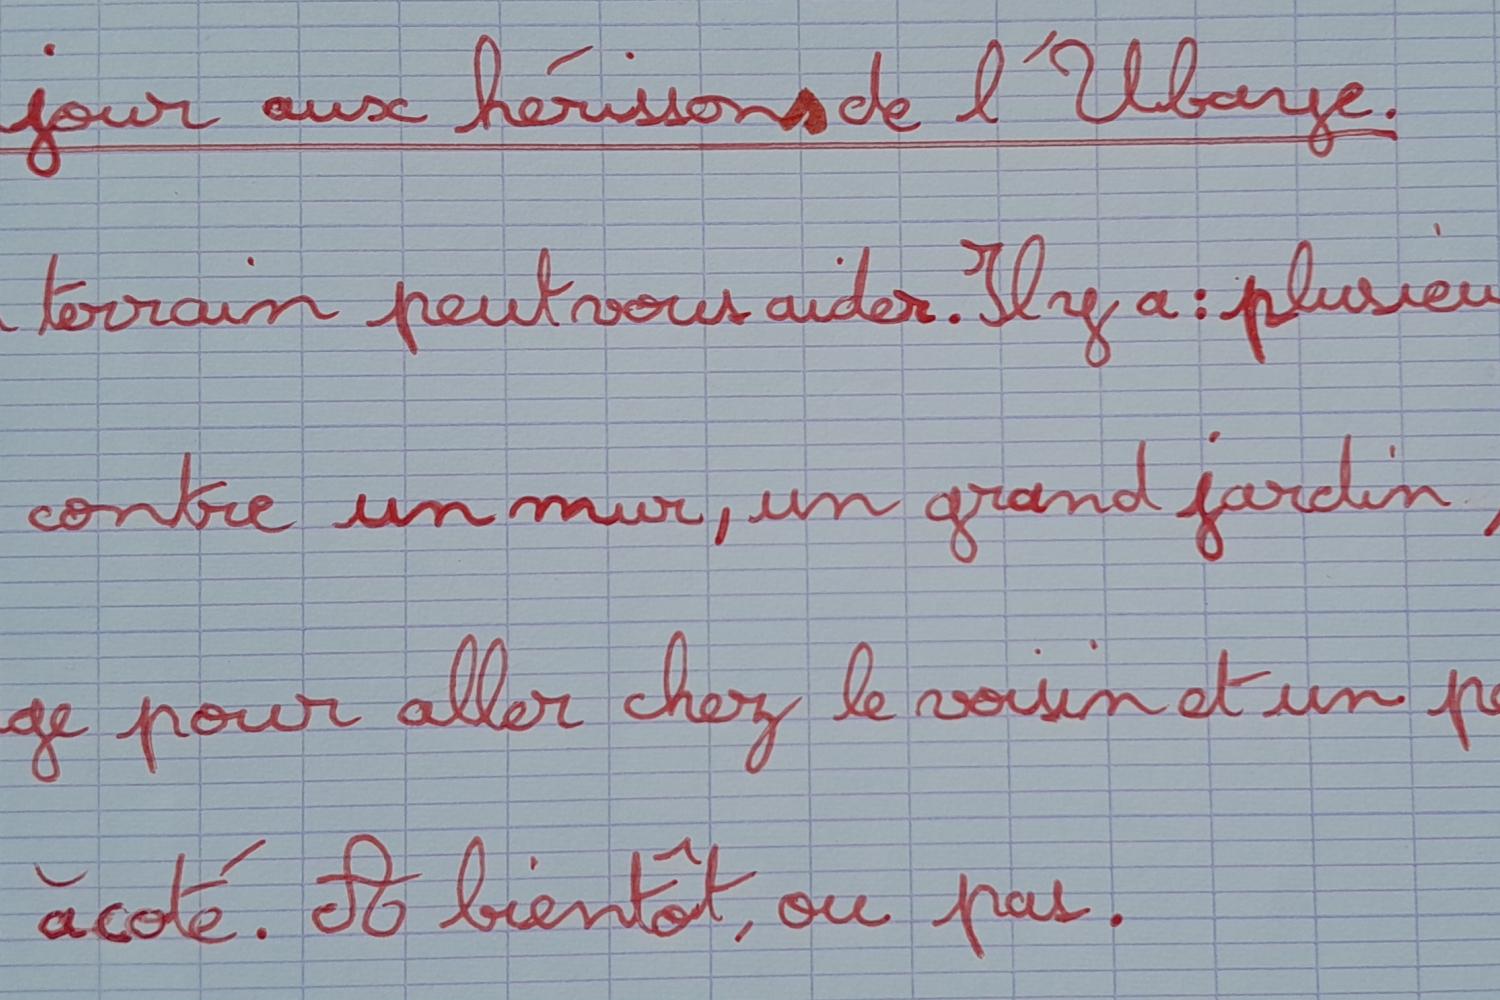 jour aux hérissons de l'Ubaye.
terrain peut vous aider. Il y a : plusieu
contre un mur, un grand jardin,
ge pour aller chez le voisin et un pe
à coté. A bientôt, ou pas.